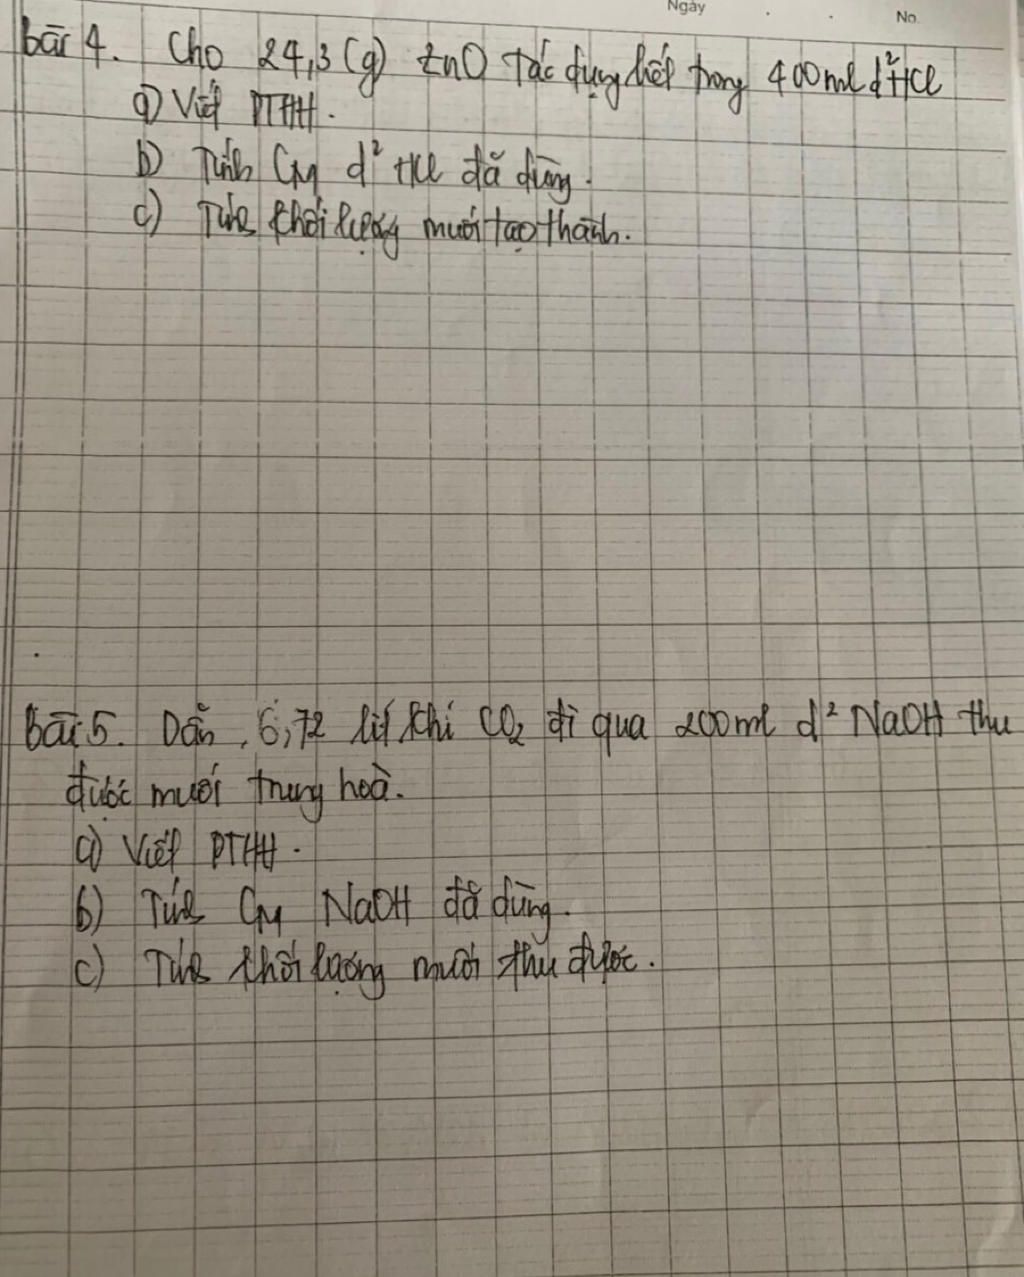 Ngày No.
Bài 4. Cho 24,3 (g) ZnO tác dụng hết trong 400ml d² HCl
a) Viết PTHH.
b) Tính CM d² HCl đã dùng.
c) Tính khối lượng muối tạo thành.
Bài 5. Dẫn 6,72 lít khí CO₂ đi qua 200ml d² NaOH thu
được muối trung hoà.
a) Viết PTHH.
b) Tính CM NaOH đã dùng.
c) Tính khối lượng muối thu được.